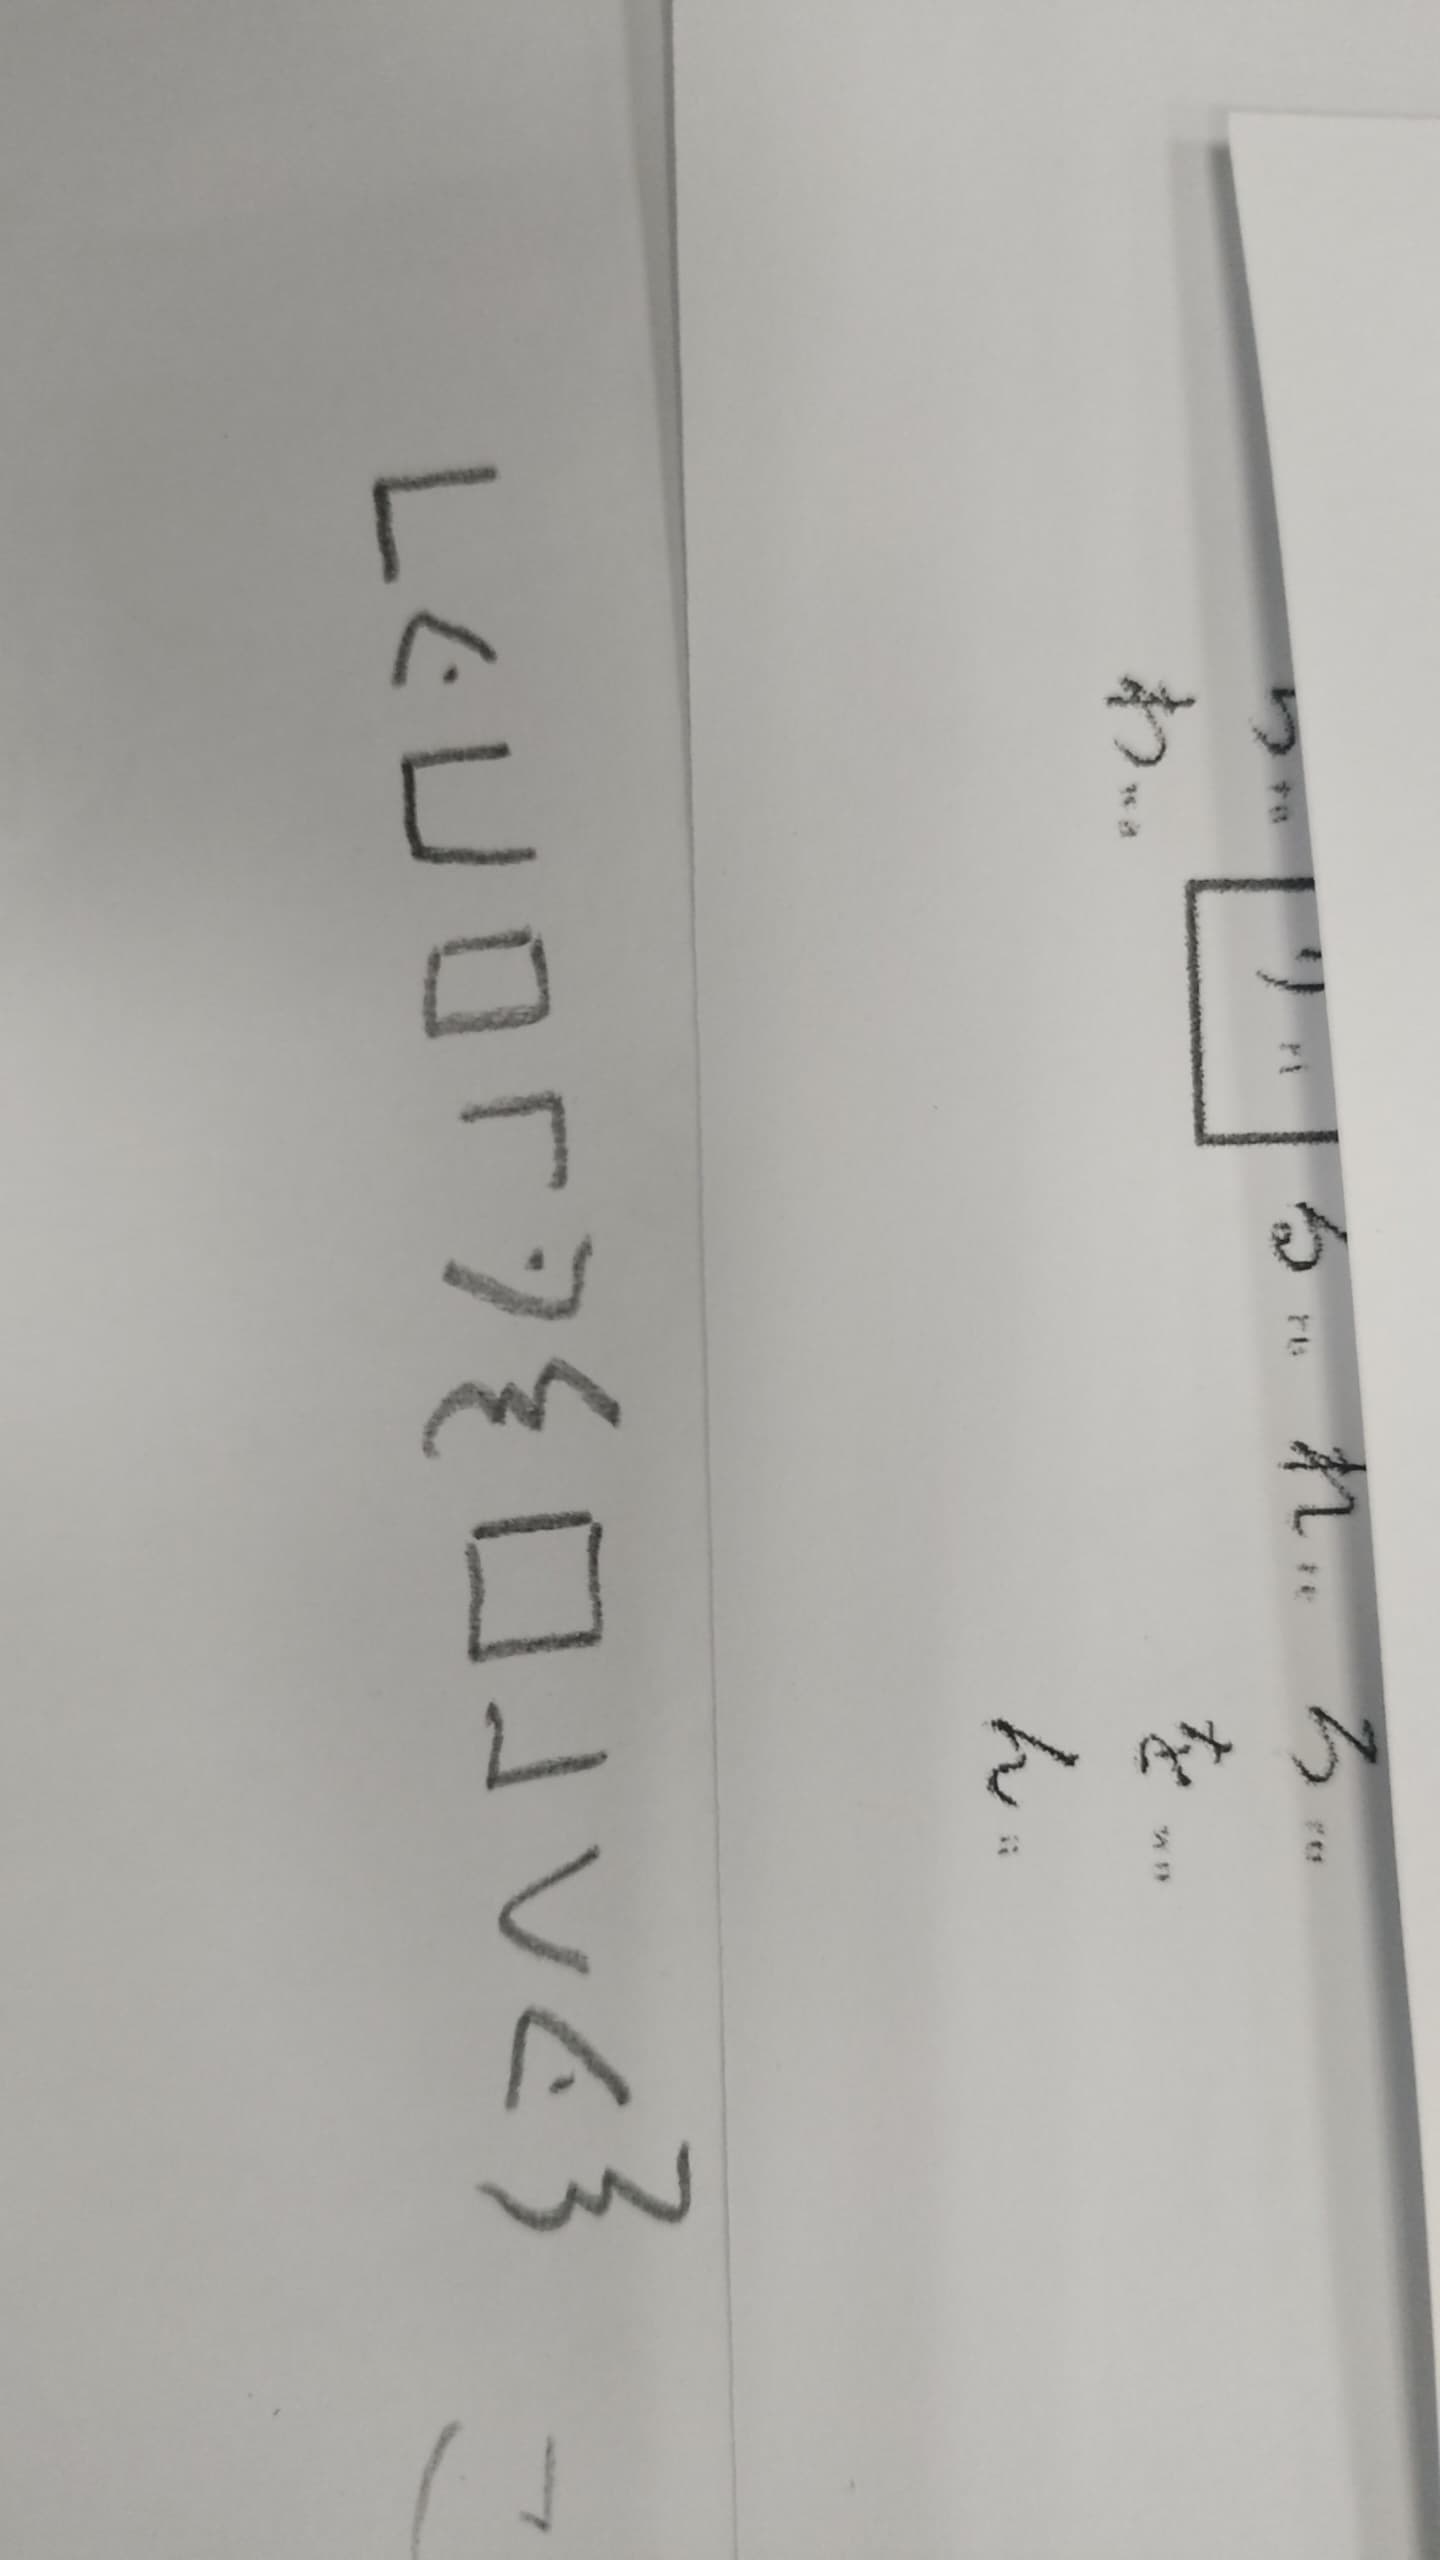 ら ra り ri る ru れ re ろ ro
わ wa を wo
ん n
L<·⊔□Γ·>{□⅃V<·}